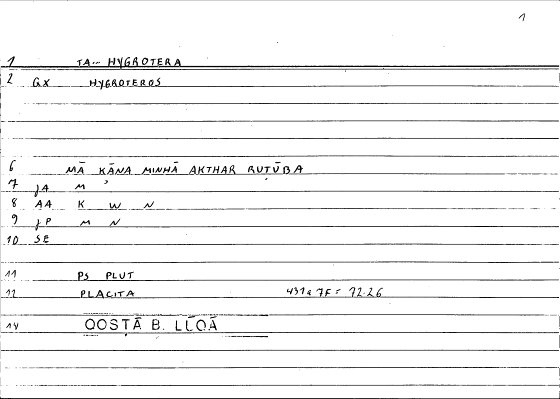 1
1 TA-- HYGROTERA
2 GX HYGROTEROS
6 MĀ KĀNA MINHĀ AKTHAR RUṬŪBA
7 JA M '
8 AA K W N
9 JP M N
10 SE
11 PS PLUT
12 PLACITA 431a 7F = 72.26
14 QOSṬĀ B. LŪQĀ